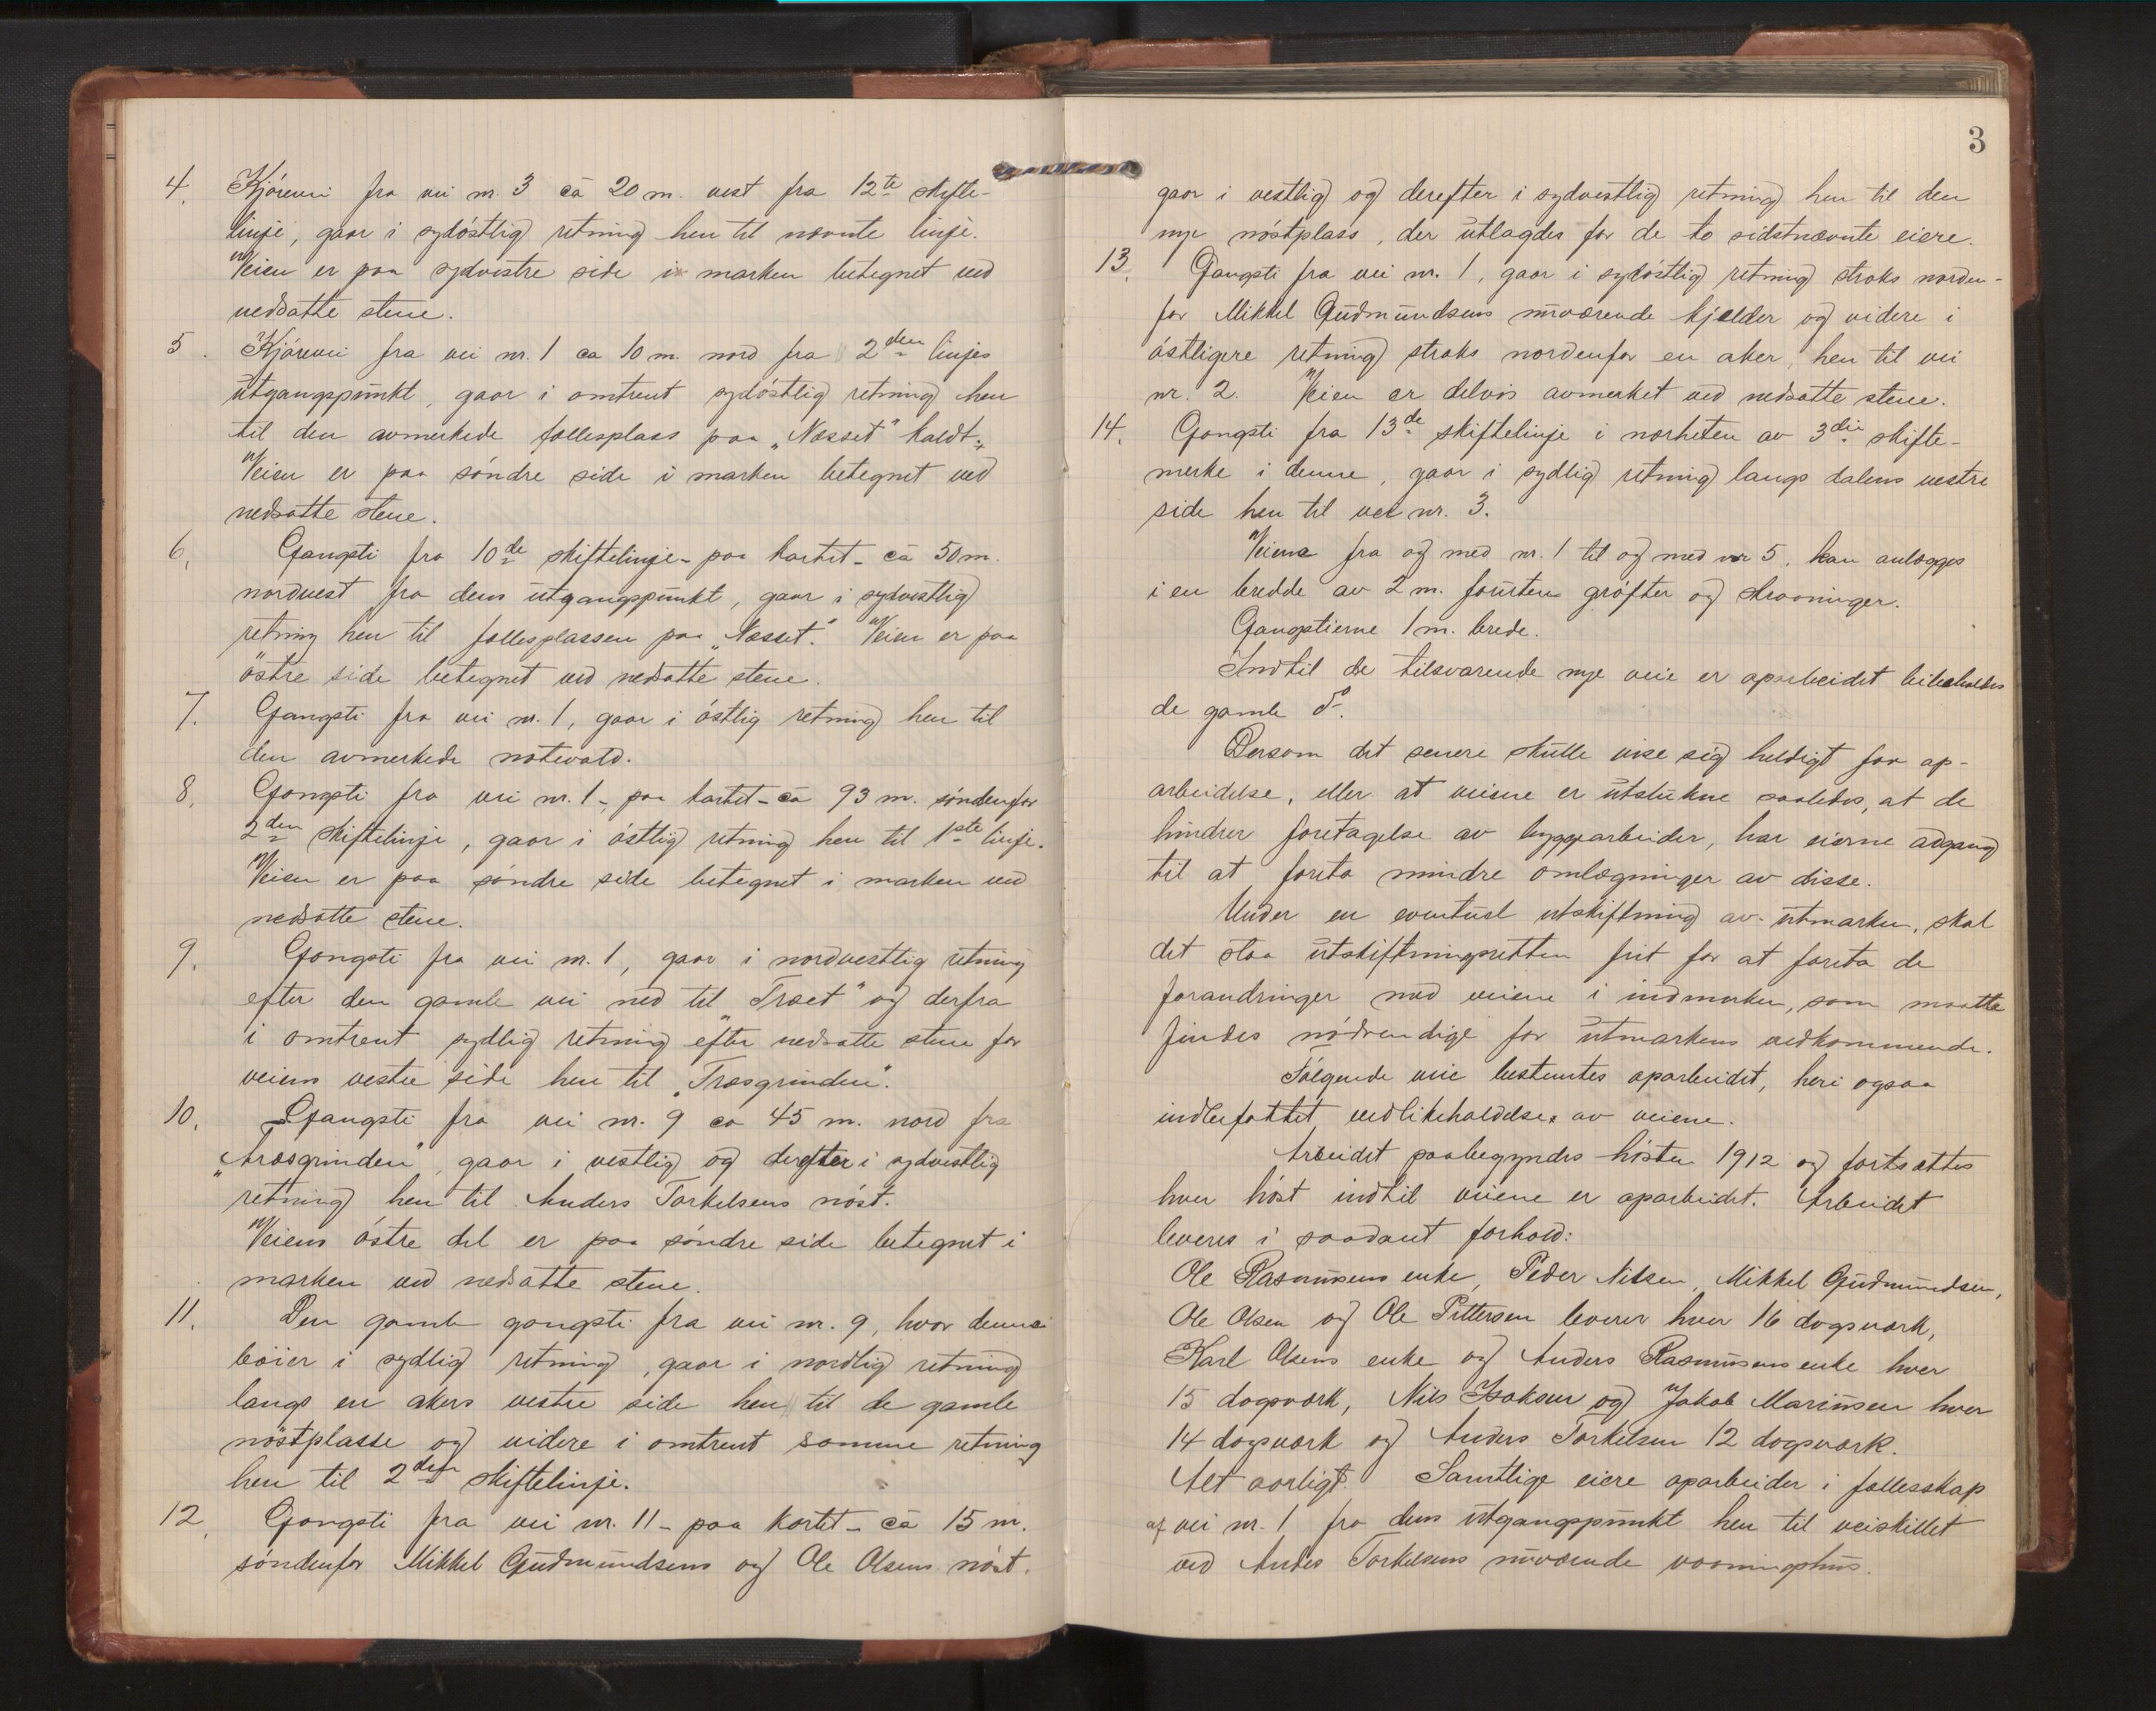 4. Kjörevei fra vei nr. 3 ca 20 m. vest fra 12te skifte-
linje, gaar i sydöstlig retning hen til nævnte linje.
Veien er paa sydvestre side i marken betegnet ved
nedsatte stene.
5. Kjörevei fra vei nr. 1 ca 10 m. nord fra 2den linjes
utgangspunkt, gaar i omtrent sydöstlig retning hen
til den avmerkede fællesplass paa „Næsset" kaldt.
Veien er paa söndre side i marken betegnet ved
nedsatte stene.
6. Gangsti fra 10de skiftelinje - paa kartet - ca 50 m.
nordvest fra dens utgangspunkt, gaar i sydvestlig
retning hen til fællesplassen paa „Næsset". Veien er paa
östre side betegnet ved nedsatte stene.
7. Gangsti fra vei nr. 1, gaar i östlig retning hen til
den avmerkede notevold.
8. Gangsti fra vei nr. 1 - paa kartet - ca 93 m. söndenfor
2den skiftelinje, gaar i östlig retning hen til 1ste linje.
Veien er paa söndre side betegnet i marken ved
nedsatte stene.
9. Gangsti fra vei nr. 1, gaar i nordvestlig retning
efter den gamle vei ned til „Træet" og derfra
i omtrent sydlig retning efter nedsatte stene for
veiens vestre side hen til „Træsgrinden".
10. Gangsti fra vei nr. 9 ca 45 m. nord fra
„Træsgrinden", gaar i vestlig og derefter i sydvestlig
retning hen til Anders Torkelsens nöst.
Veiens östre del er paa söndre side betegnet i
marken ved nedsatte stene.
11. Den gamle gangsti fra vei nr. 9, hvor denne
böier i sydlig retning, gaar i nordlig retning
langs en akers vestre side hen til de gamle
nöstplasse og videre i omtrent samme retning
hen til 2den skiftelinje.
12. Gangsti fra vei nr. 11 - paa kartet - ca 15 m.
söndenfor Mikkel Gudmundsens og Ole Olsens nöst.
3
gaar i vestlig og derefter i sydvestlig retning hen til den
nye nöstplass, der utlagdes for de to sidstnævnte eiere.
13. Gangsti fra vei nr. 1, gaar i sydöstlig retning straks norden-
for Mikkel Gudmundsens nuværende kjælder og videre i
östligere retning straks nordenfor en aker, hen til vei
nr. 2. Veien er delvis avmerket ved nedsatte stene.
14. Gangsti fra 13de skiftelinje i nærheten av 3die skifte-
merke i denne, gaar i sydlig retning langs dalens vestre
side hen til vei nr. 3.
Veiene fra og med nr. 1 til og med nr 5, kan anlægges
i en bredde av 2 m. foruten gröfter og skraaninger.
Gangstierne 1 m. brede.
Indtil de tilsvarende nye veie er oparbeidet beibeholdes
de gamle do.
Dersom det senere skulle vise sig heldigt for op-
arbeidelse, eller at veiene er utstukne saaledes, at de
hindrer foretagelse av byggearbeider, har eierne adgang
til at foreta mindre omlægninger av disse.
Under en eventuel utskiftning av utmarken, skal
det staa utskiftningsretten frit for at foreta de
forandringer med veiene i indmarken, som maatte
findes nödvendige for utmarkens vedkommende.
Fölgende veie bestemtes oparbeidet, heri ogsaa
indbefattet vedlikeholdelse av veiene.
Arbeidet paabegyndes hösten 1912 og fortsættes
hver höst indtil veiene er oparbeidet. Arbeidet
leveres i saadant forhold:
Ole Rasmusens enke, Peder Nilsen, Mikkel Gudmundsen,
Ole Olsen og Ole Pettersen leverer hver 16 dagsværk,
Karl Olsens enke og Anders Rasmusens enke hver
15 dagsværk, Nils Isaksen og Jakob Mariusen hver
14 dagsværk og Anders Torkelsen 12 dagsværk.
Alt aarligt. Samtlige eiere oparbeider i fællesskap
af vei nr. 1 fra dens utgangspunkt hen til veiskillet
ved Anders Torkelsens nuværende vaaningshus.